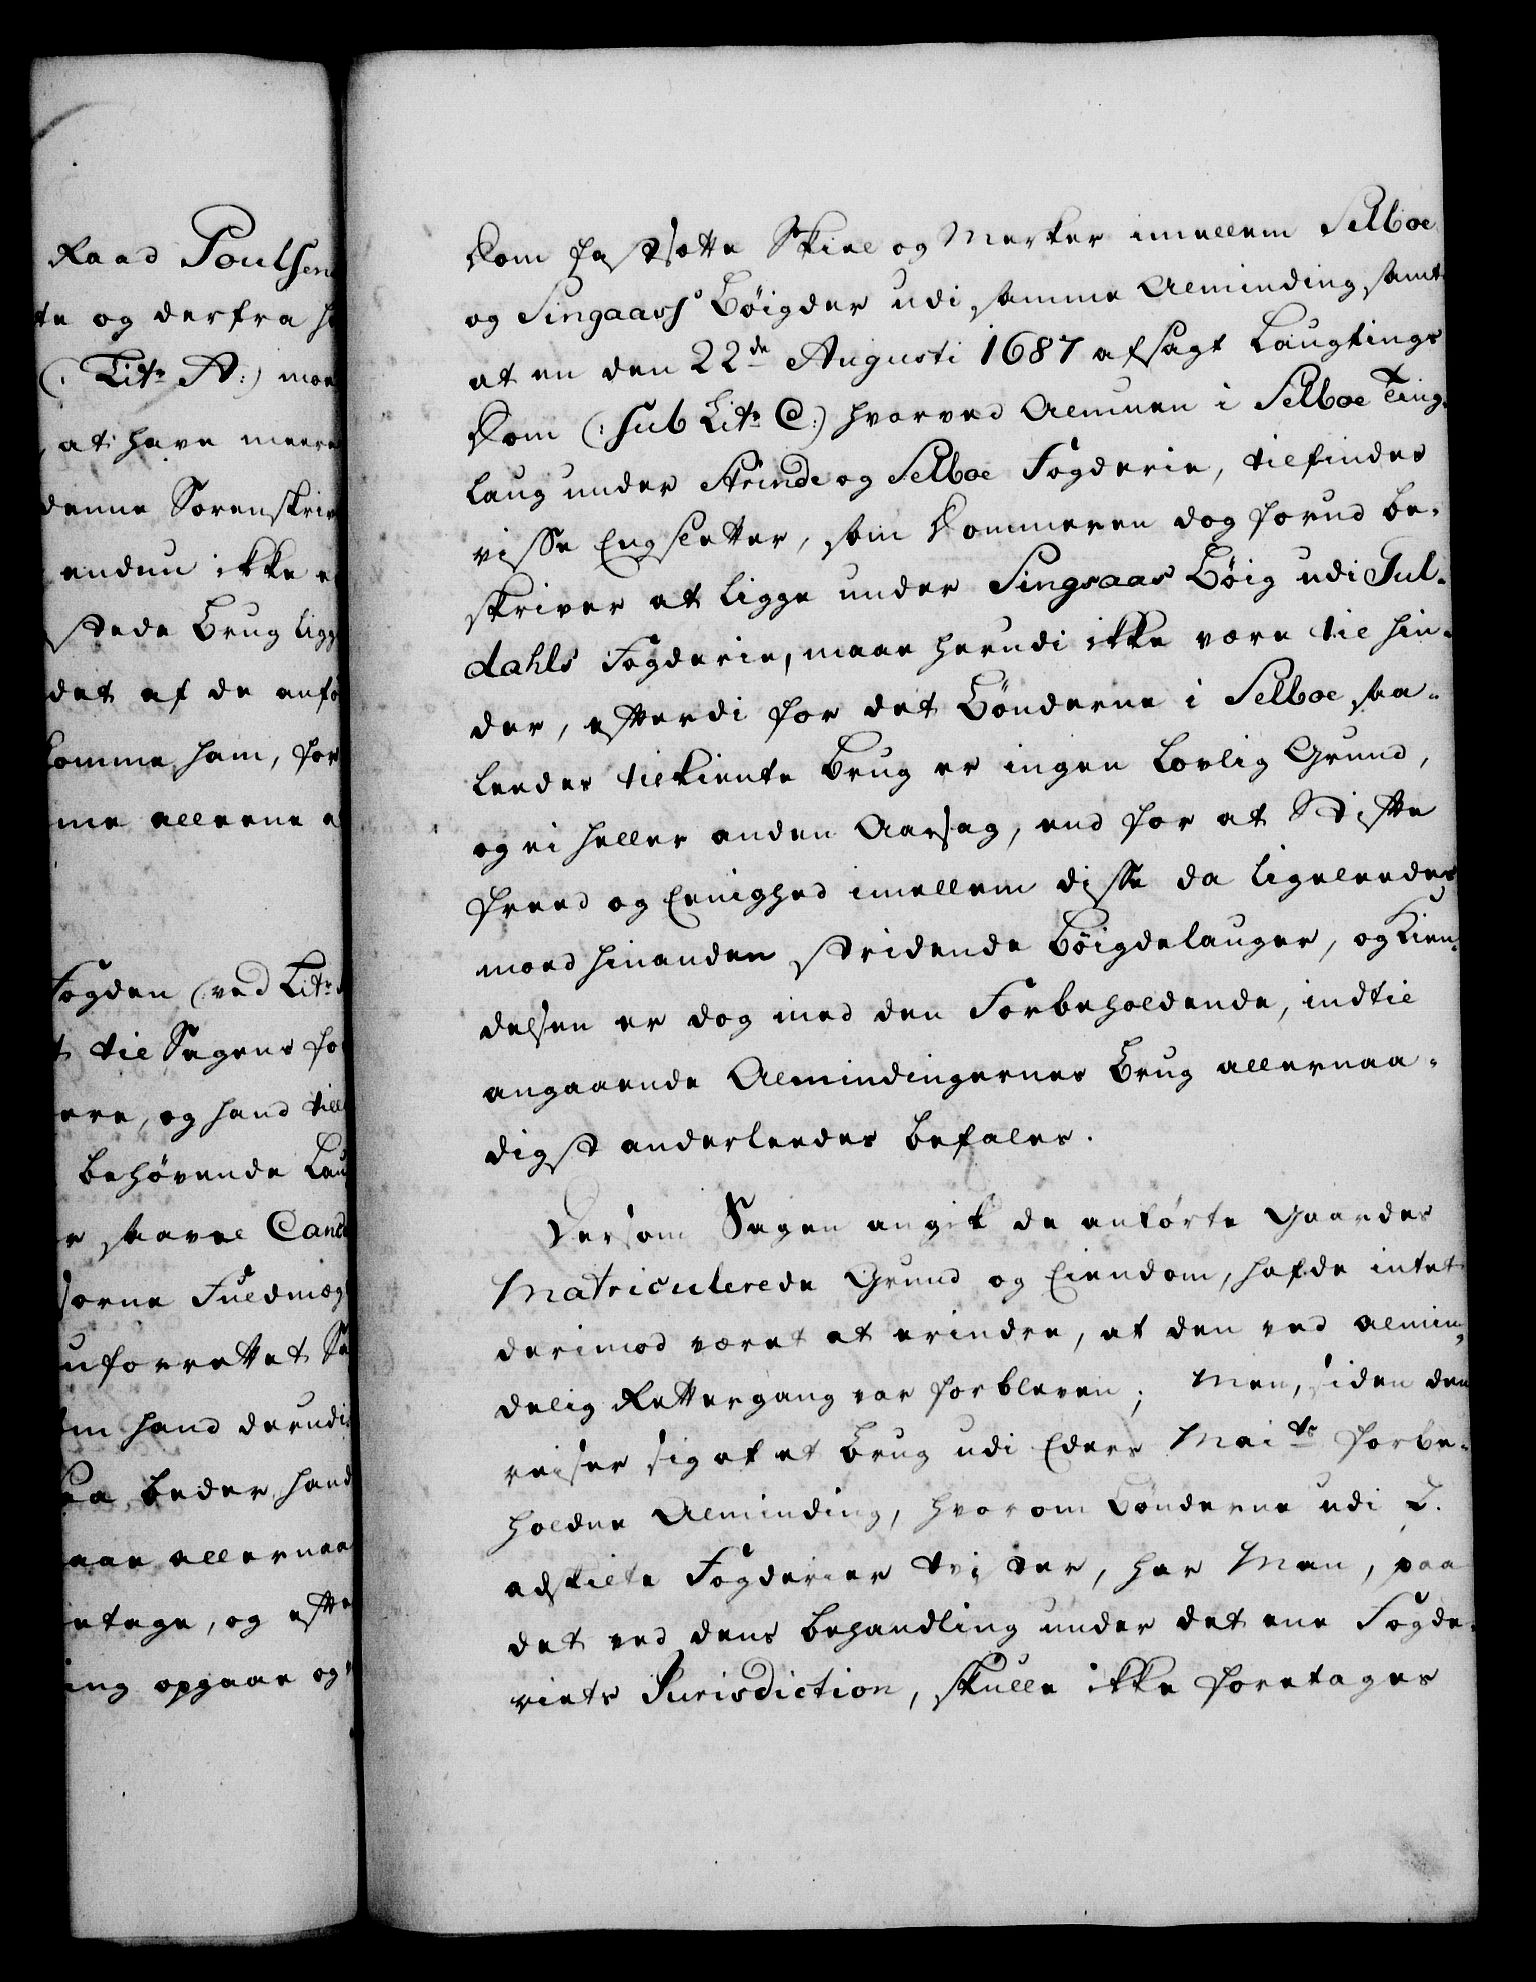 Raad Poulsen
te og derfra
(: Litr A:) mo
at have meere
denne Sorenskriv
endnu ikke
stede Brug ligg
det af de anfø
komme ham, for
me allerne
Fogden (: ved Litr
til Sagens fo
ere, og hand till
behøvende Lau
saavel Cand
orne Fuldmæg
uforrettet Sa
hand derudi
beder hand
aar allernaa
etage, og efte
ing opgaae og
Dom fastsatte Skiel og Merker imellem Selboe
og Singaars Bøigder udi samme Alminding, samt
at en den 22de Augusti 1687 afsagt Laugtings
Dom (: sub Litr C:) hvorved Almuen i Selboe Ting-
laug under Strinde og Selboe Fogderie, tilfindes
visse Engsletter, som Dommeren dog forud be-
skriver at ligge under Singsaas Bøig udi Gul-
dahls Fogderie, maae herudi ikke være til Hin-
der, efterdi for det Bønderne i Selboe saa-
ledes tilkiente Brug er ingen Lovlig Grund,
og ei heller anden Aarsag, end for at Stifte
Freed og Eenighed imellem disse da ligeleedes
mod hinanden stridende Bøigdelauger, og Kien-
delsen er dog med den Forbeholdende, indtil
angaaende Almindingernes Brug allernaa-
digst anderleedes befales.
Dersom Sagen angik de anførte Gaardes
Matriculerede Grund og Eiendom, hafde intet
derimod været at erindre, at den ved almin-
delig Rettergang var forbleven; Men, siden den
reiser sig af et Brug udi Eders Maits forbe-
holdne Alminding, hvorom Bønderne udi 2.
adskilte Fogderier tvister, har Man, paa
det ved dens behandling under det ene Fogde-
riets Jurisdiction, skulle ikke foretages